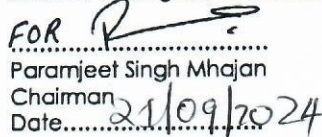 FOR
Paramjeet Singh Mhajan
Chairman
Date......21/09/2024